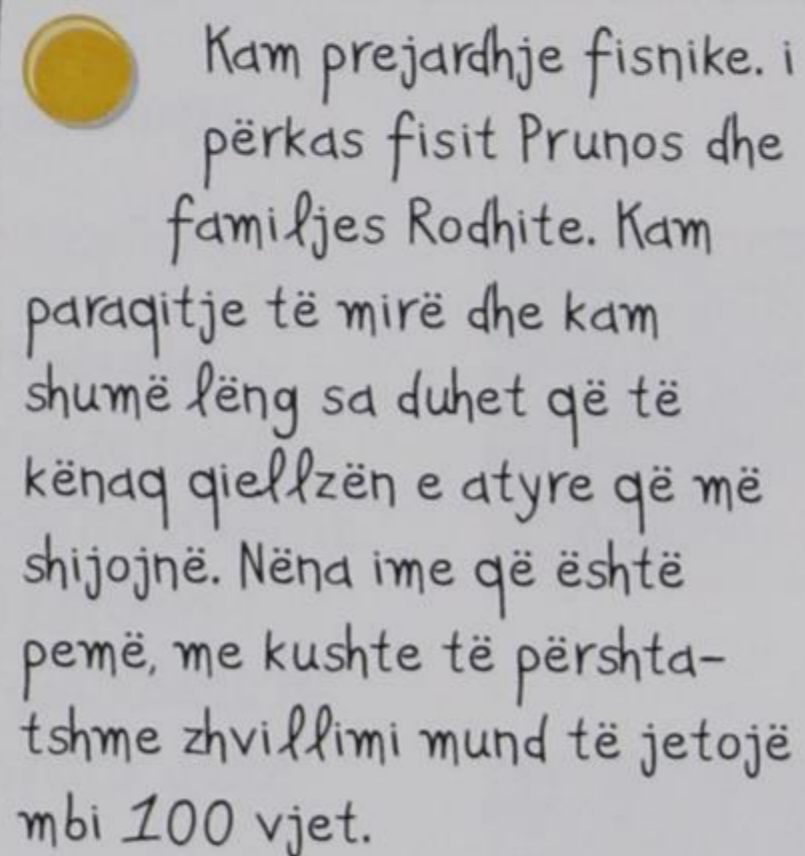 Kam prejardhje fisnike. i
përkas fisit Prunos dhe
familjes Rodhite. Kam
paraqitje të mirë dhe kam
shumë lëng sa duhet që të
kënaq qiellzën e atyre që më
shijojnë. Nëna ime që është
pemë, me kushte të përshta-
tshme zhvillimi mund të jetojë
mbi 100 vjet.